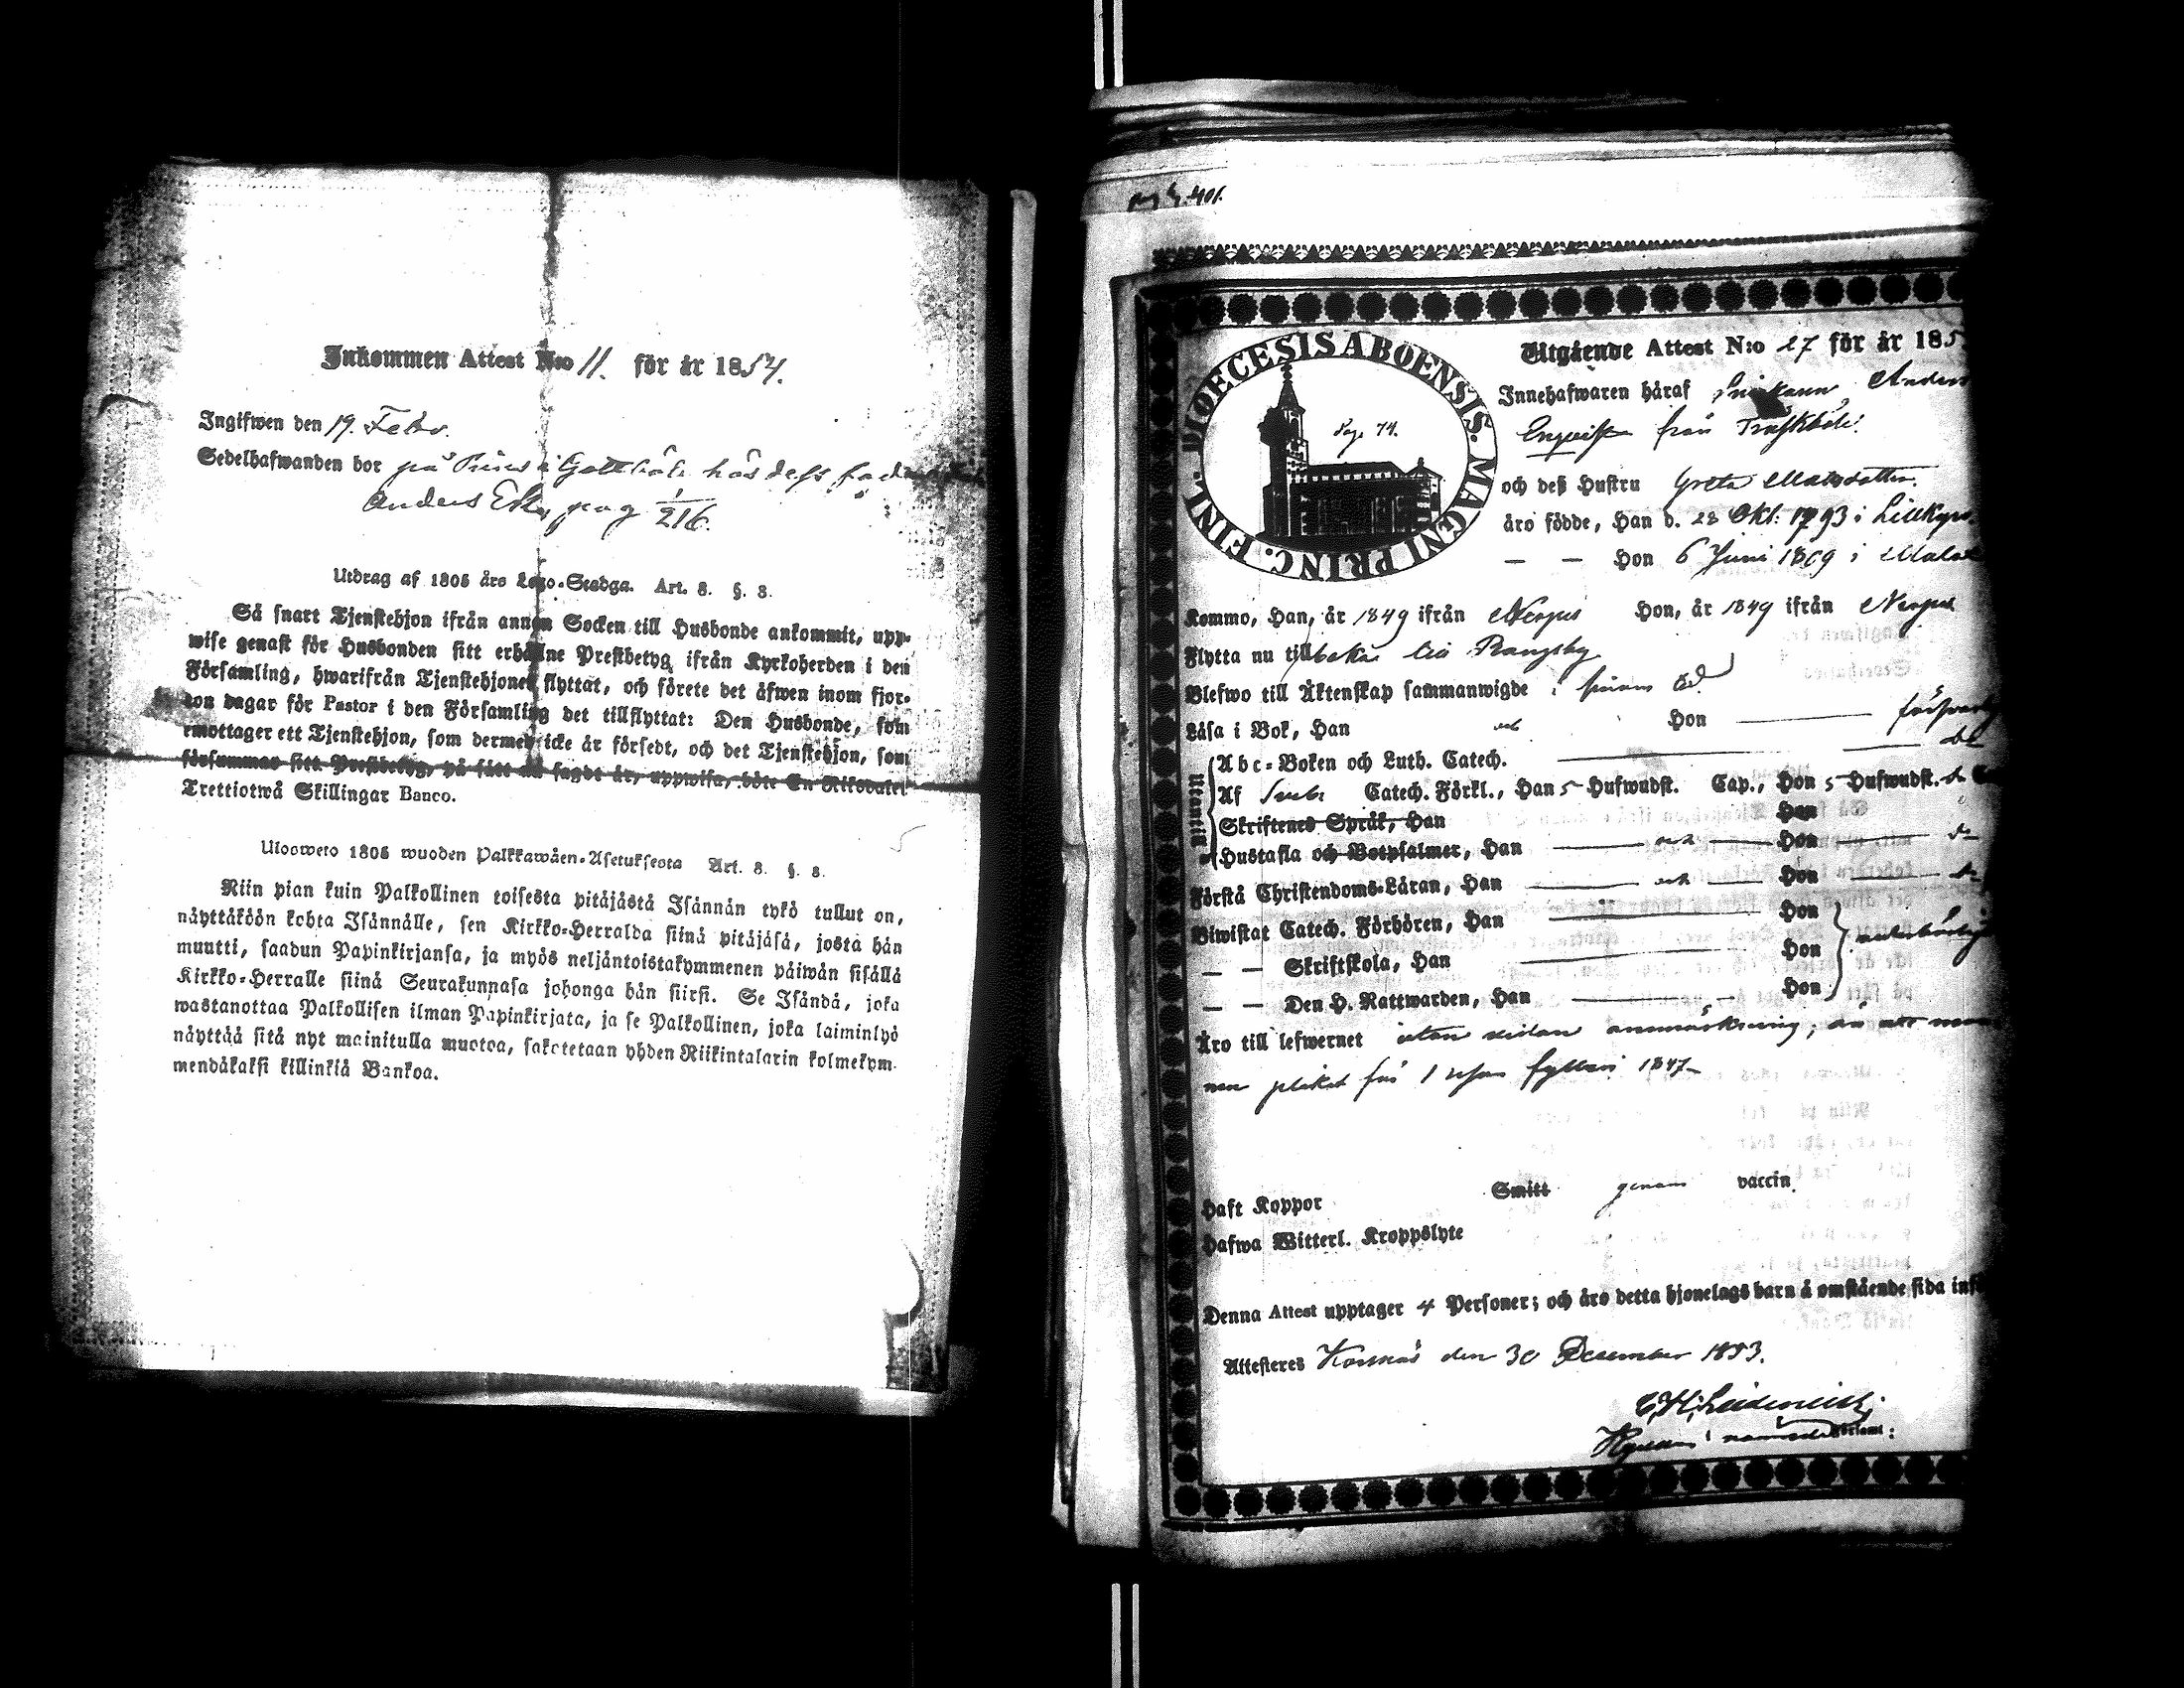 Inkommen Attest N:o 11. för år 1854.
Ingifwen den 19. Febr.
Sedelhafwanden bor på i hos dess fader
Anders pag 1/216.
Utdrag af 1805 års Lego-Stadga. Art. 8. §. 8.
Så snart Tjenstehjon ifrån annan Socken till Husbonde ankommit, upp-
wise genast för Husbonden sitt erhållne Prestbetyg ifrån Kyrkoherden i den
Församling, hwarifrån Tjenstehjonet flyttat, och förete det äfwen inom fjor-
ton dagar för Pastor i den Församling det tillflyttat: Den Husbonde, som
emottager ett Tjenstehjon, som dermed icke är försedt, och det Tjenstehjon, som
försummar sitt Prestbetyg, på sätt nu sagdt är, uppwisa, böte En Riksdaler
Trettiotwå Skillingar Banco.
Ulosweto 1805 wuoden Palkkawäen-Asetuksesta Art. 8. §. 8.
Niin pian kuin Palkollinen toisesta pitäjästä Isännän tykö tullut on,
näyttäköön kohta Isännälle, sen Kirkko-Herralda siinä pitäjäsä, josta hän
muutti, saadun Papinkirjansa, ja myös neljäntoistakymmenen päiwän sisällä
Kirkko-Herralle siinä Seurakunnasa johonga hän siirsi. Se Isändä, joka
wastanottaa Palkollisen ilman Papinkirjata, ja se Palkollinen, joka laiminlyö
näyttää sitä nyt mainitulla muotoa, sakotetaan yhden Riikintalarin kolmekym-
mendäkaksi killinkiä Bankoa.
401.
DIOECESIS ABOENSIS. MAGNI PRINC. FINL.
Pag. 74.
Utgående Attest N:o 27 för år 185
Innehafwaren häraf Anders
Enqvist från Träskböle
och deß Hustru Greta Matsdotter
äro födde, Han d. 28 Okt: 1793 i Lillkyro
— — Hon 6 Juni 1809 i Malax
Kommo, Han, år 1849 ifrån Nerpes Hon, år 1849 ifrån Nerpes
Flytta nu tillbaka till Rangsby
Blefwo till Äktenskap sammanwigde i
Läsa i Bok, Han och Hon — försvarl
Utantill
Abc-Boken och Luth. Catech. —
Af Catech. Förkl., Han 5 Hufwudst. Cap., Hon 5 Hufwudst.
Skriftenes Språk, Han Hon
Hustafla och Botpsalmer, Han — och — Hon —
Förstå Christendoms-Läran, Han — och — Hon —
Biwistat Catech. Förhören, Han — Hon
— — Skriftskola, Han — Hon
— — Den H. Nattwarden, Han — Hon
Äro till lefwernet utan vidare anmärkning; än att
pliktat för 1 resan fylleri 1847
Haft Koppor Smitt genom vaccin.
Hafwa Witterl. Kroppslyte
Denna Attest upptager 4 Personer; och äro detta hjonelags barn å omstående sida
Attesteres Korsnäs den 30 December 1853.